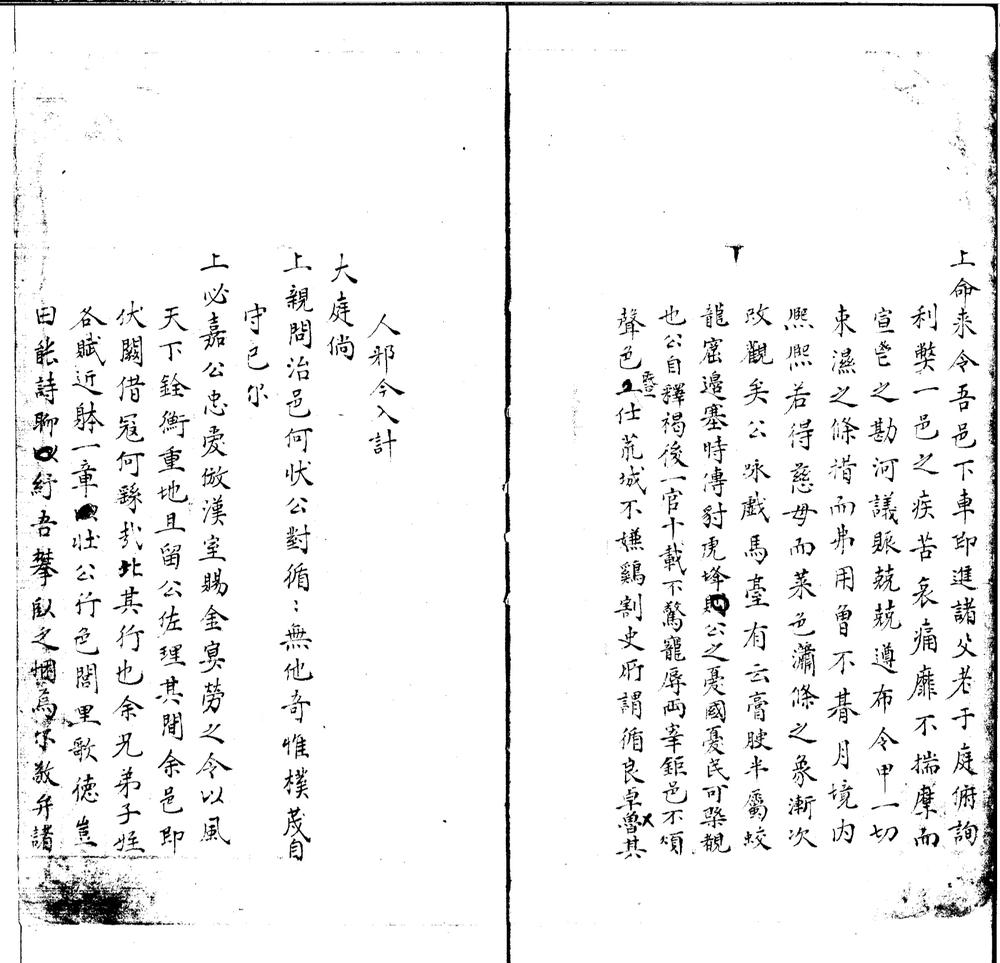 上命来令吾邑下車即進諸父老于庭俯詢
利獘一邑之疾苦哀痛靡不揣摩而
宣 之勘河議賑兢兢遵布令甲一切
束濕之條措而弗用曾不朞月境内
熙熙若得慈母而菜色瀟條之象漸次
改觀矣公咏戲馬臺有云膏腴半屬蛟
龍窟邉塞時傳豺虎烽 公之憂國憂民可槩観
也公自釋褐後一官十載不驚寵辱兩宰鉅邑不煩
聲色 仕荒城不嫌鷄割史所謂循良卓魯其
人邪今入計
大庭倘
上親問治邑何状公對循〻無他奇惟樸茂自
守已尔
上必嘉公忠爱倣漢室賜金寘勞之令以風
天下銓衡重地且留公佐理其間余邑即
伏闕借寇何繇哉北其行也余兄弟子姪
各賦近躰一章 壮公行色閭里歌徳豈
曰能詩聊以紓吾攀臥之悃焉尔敬弁諸